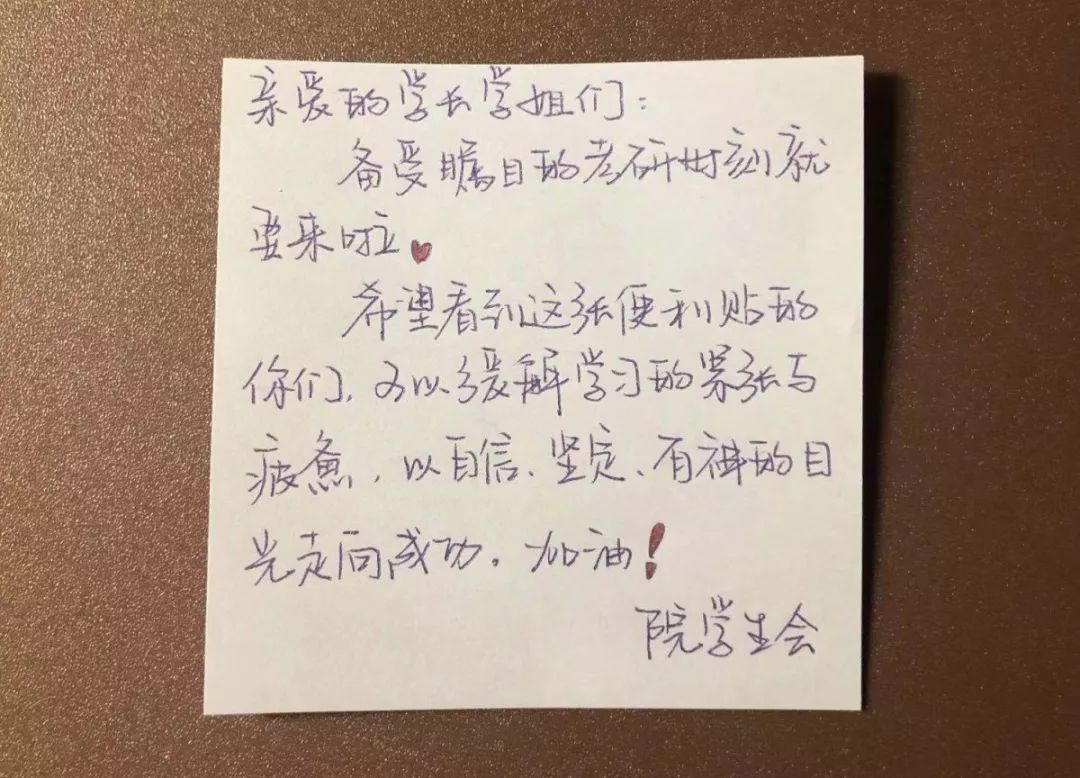 亲爱的学长学姐们：
备受瞩目的考研时刻就
要来啦
希望看到这张便利贴的
你们，可以缓解学习的紧张与
疲惫，以自信、坚定、有神的目
光走向成功。加油！
院学生会